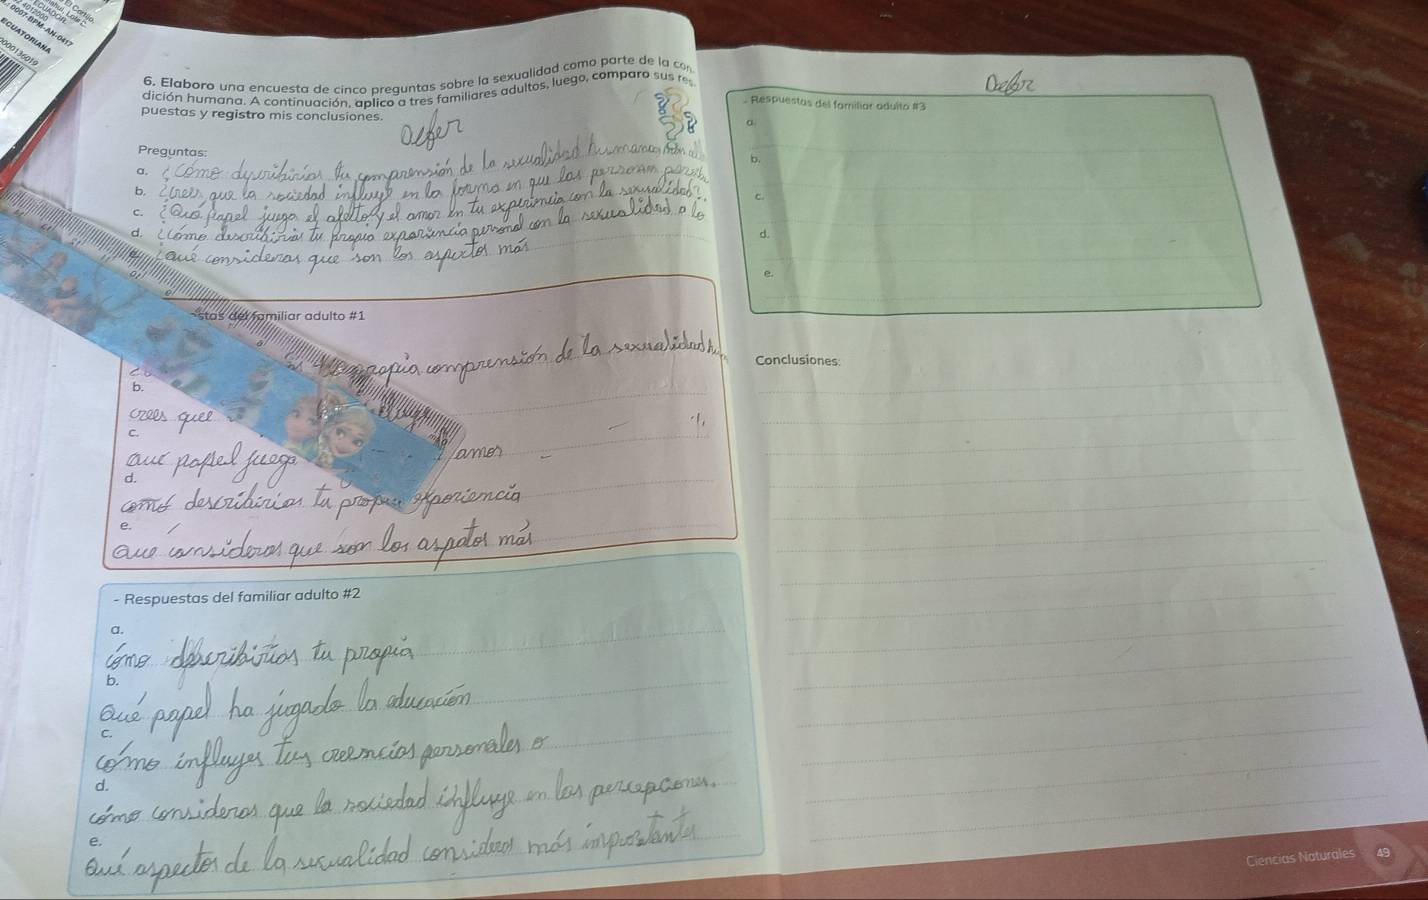 ECUATORIANA
6. Elaboro una encuesta de cinco preguntas sobre la sexualidad como parte de la con
dición humana. A continuación, aplico a tres familiares adultos, luego, comparo sus res
puestas y registro mis conclusiones.
Preguntas:
a. ¿Cómo describirías tu comprensión de la sexualidad humana
b. ¿Crees que la sociedad influye en la forma en que las personas
c. ¿Qué papel juega el afecto y el amor en tu experiencia con la sexualidad?
d. ¿Cómo describirías tu propia experiencia personal con la sexualidad a lo
¿qué consideras que son los aspectos más
stas del familiar adulto #1
propia comprensión de la sexualidad hu
b.
crees que
c.
que papel juega amor
d.
como describirias tu propia experiencia
e.
que consideras que son los aspatos más
- Respuestas del familiar adulto #2
a.
cómo describirías tu propia
b.
Qué papel ha jugado la educación
c.
cómo influyes tus creencias personales o
d.
cómo consideras que la sociedad influye en las percepciones.
e.
Qué aspectos de la sexualidad consideras más importantes
- Respuestas del familiar adulto #3
a.
b.
c.
d.
e.
Conclusiones:
Ciencias Naturales 49